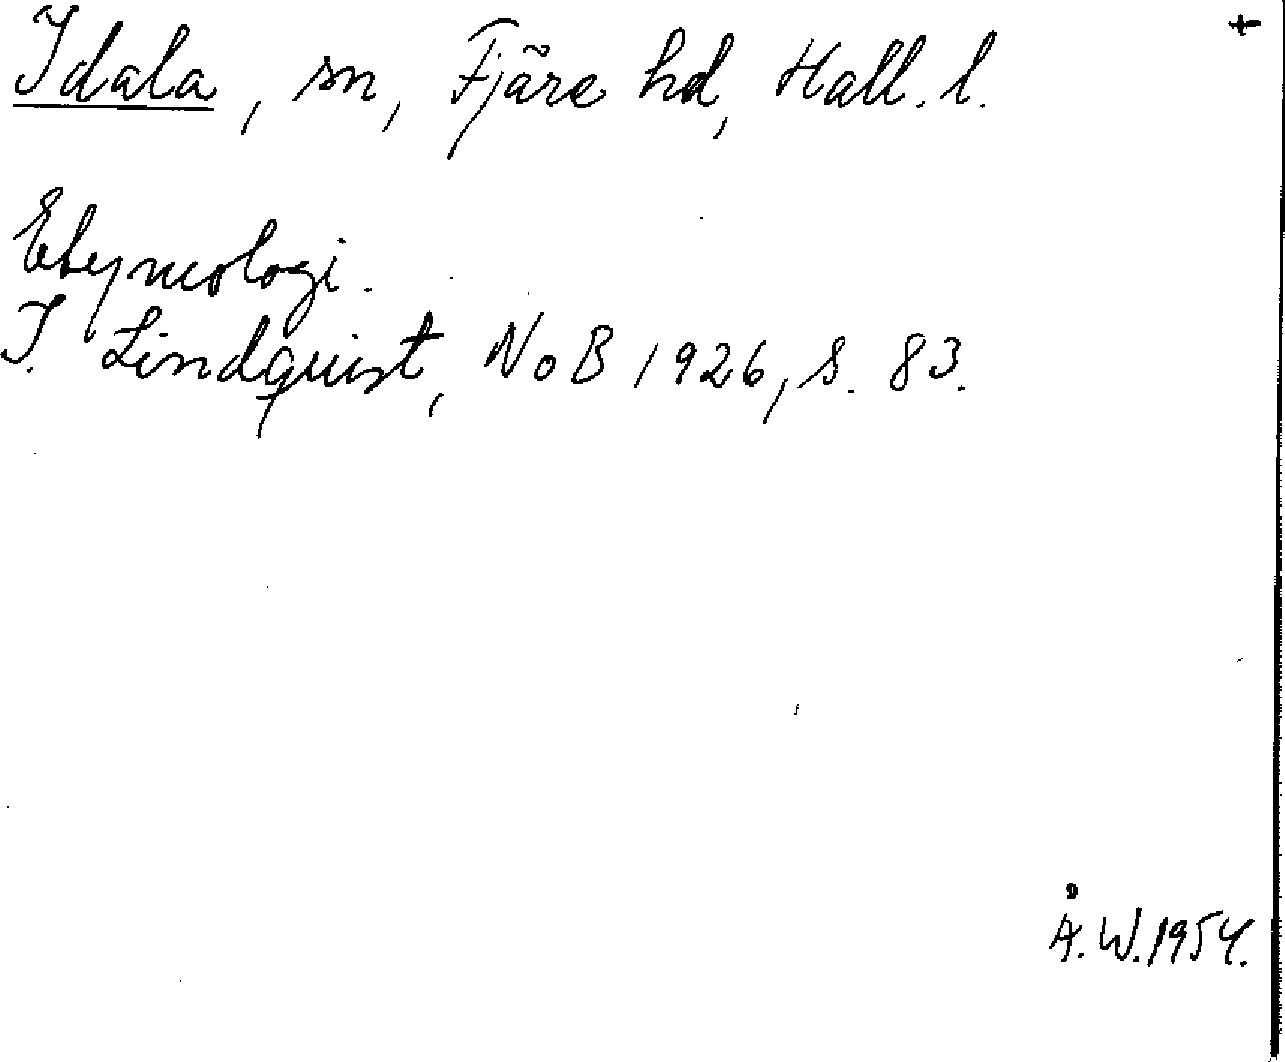 Idala, sn, Fjäre hd, Hall. l.
Etymologi.
I. Lindquist, NoB 1926, s. 83.
Å.W.1954.